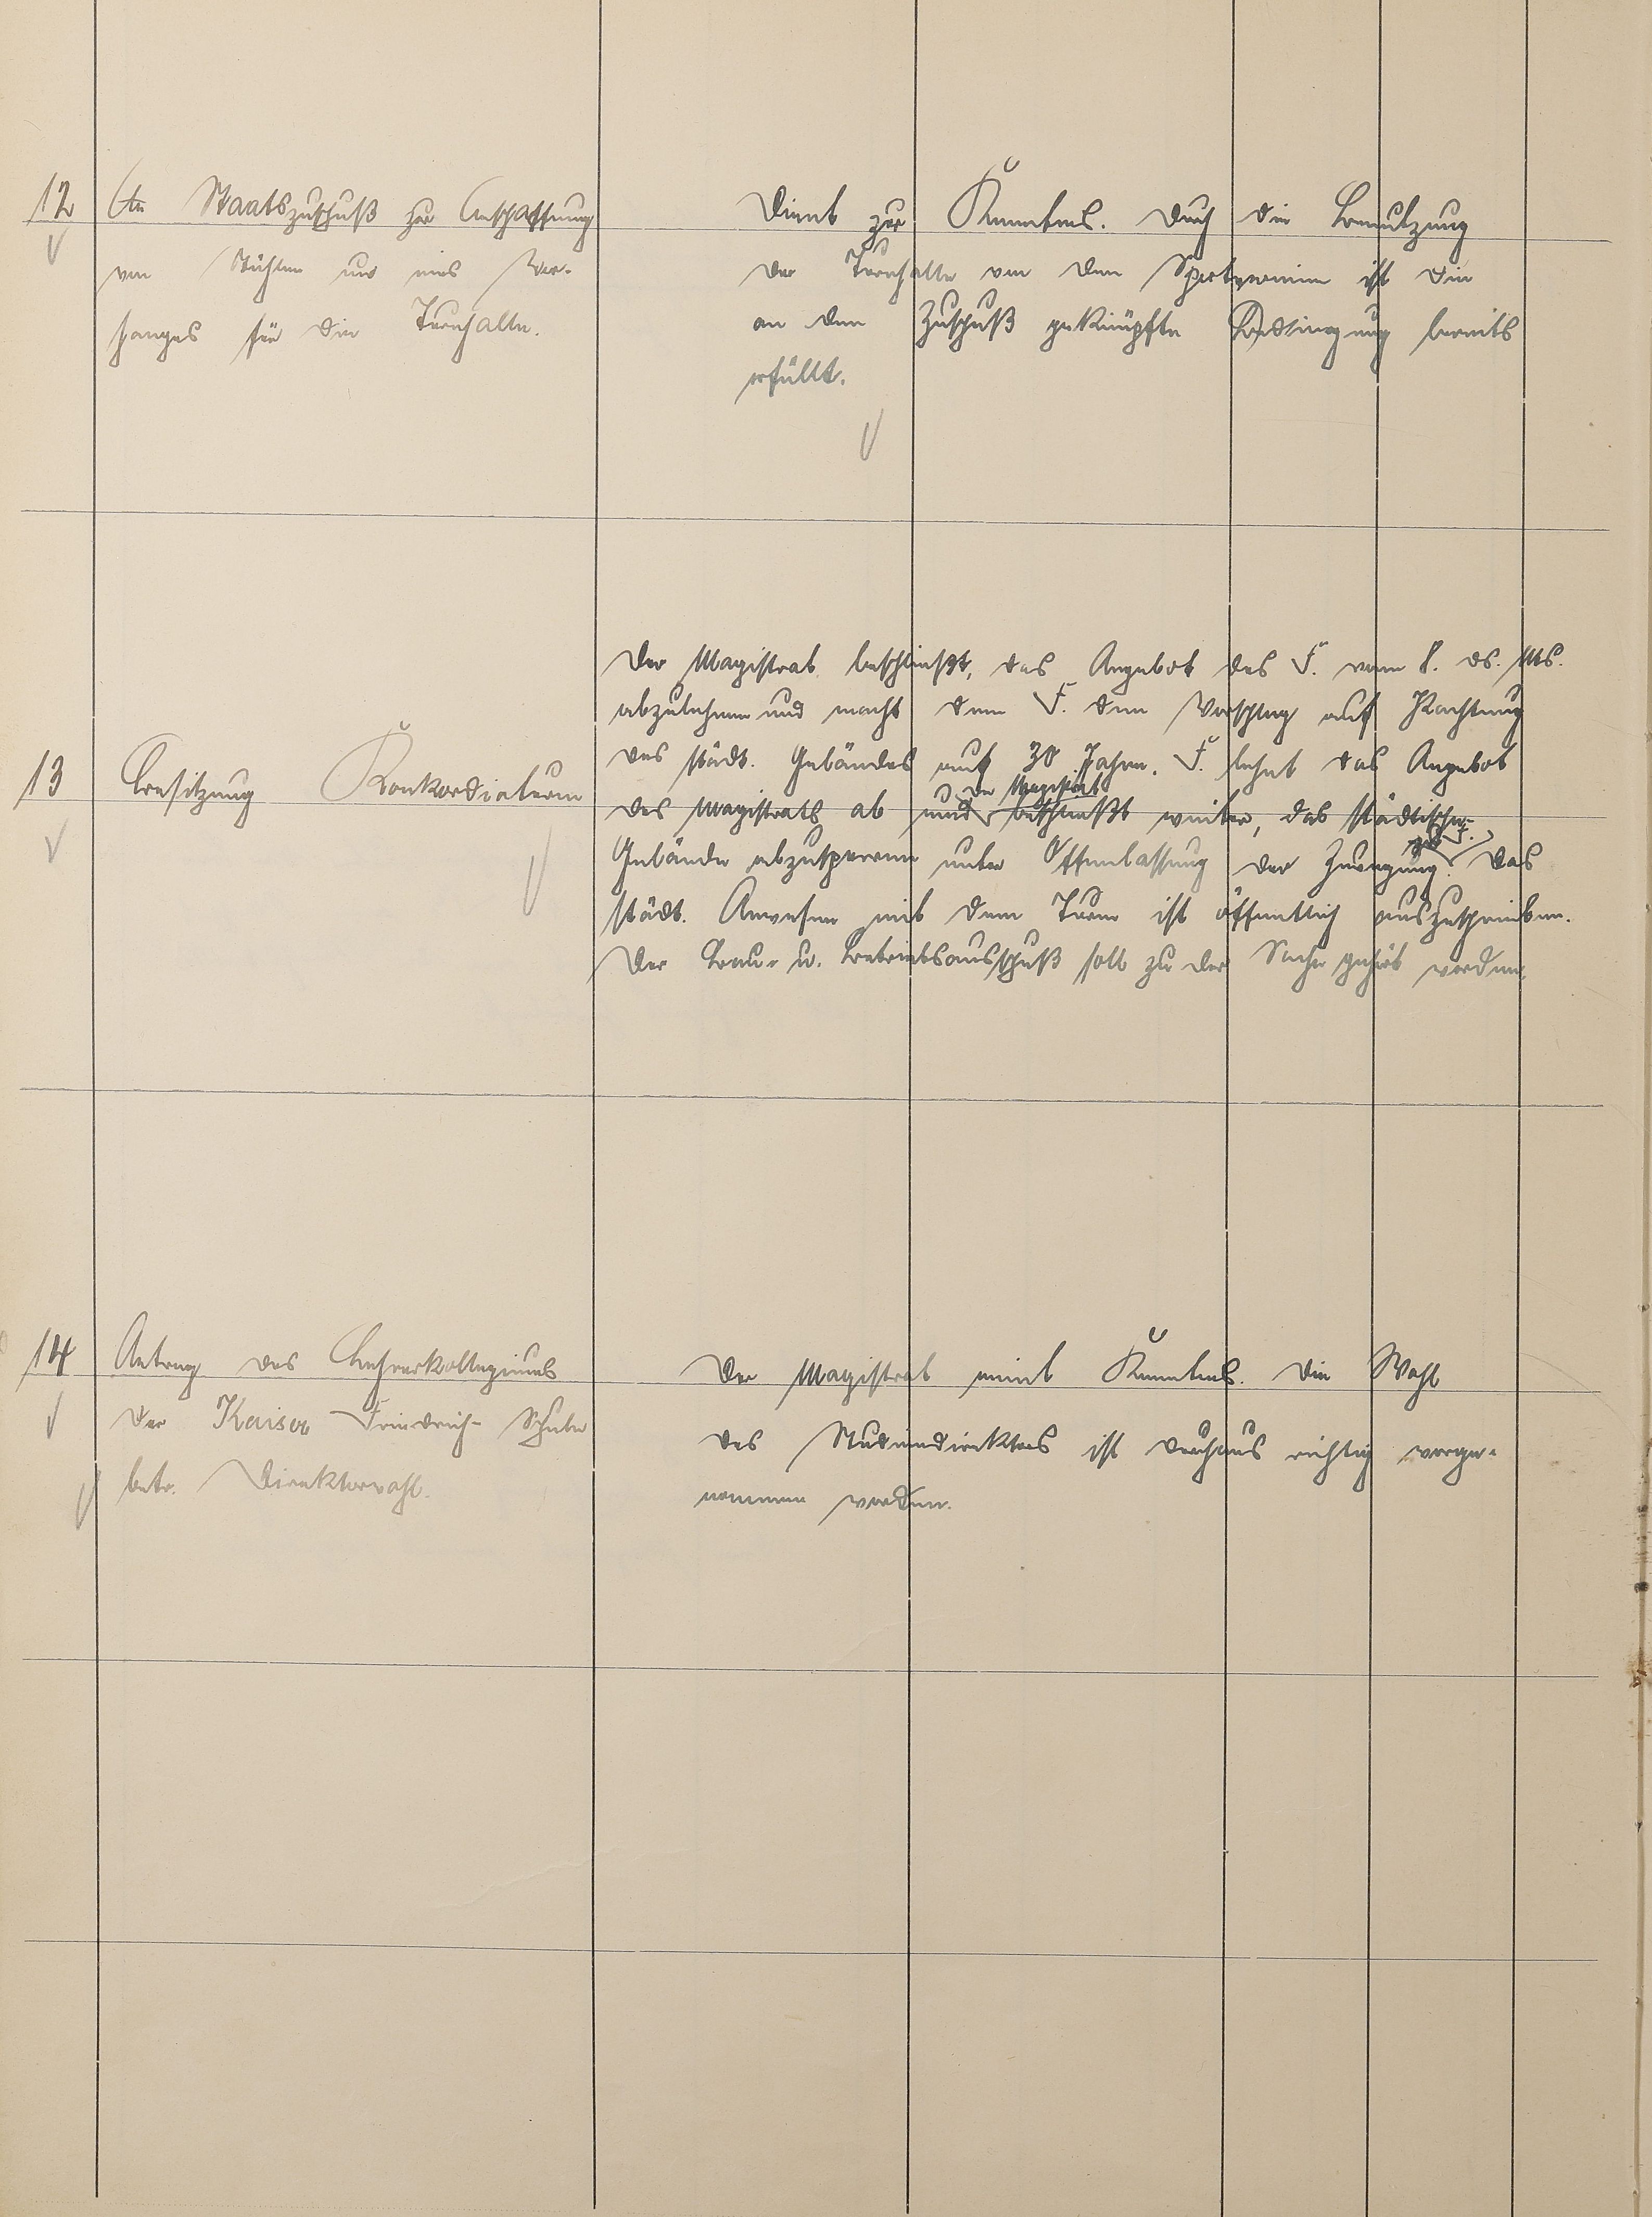 12 Staatszuschuß zur Anschaffung
von Stühlen und eines Vor-
hanges für die Turnhalle.
Dient zur Kenntnis. Durch die Benutzung
der Turnhalle von den Sportvereinen ist die
an den Zuschuß geknüpfte Bedingung bereits
erfüllt.
13 Besitzung Konkordiaturm
Der Magistrat beschließt, das Angebot des F. vom 8. ds. Mts.
abzulehnen und macht dem F. den Vorschlag auf Pachtung
des städt. Gebäudes auf 30 Jahre. F. lehnt das Angebot
der Magistrat
des Magistrats ab und beschließt weiter, das städtische
zu F.
Gebäude abzusperren unter Offenlassung der Zuwegung. Das
städt. Anwesen mit dem Turm ist öffentlich auszuschreiben.
Der Bau- u. Betriebsausschuß soll zu der Sache gehört werden.
14 Antrag des Lehrerkollegiums
der Kaiser Friedrich-Schule
betr. Direktorwahl.
Der Magistrat nimt Kenntnis. Die Wahl
des Studiendirektors ist durchaus richtig vorge-
nommen worden.